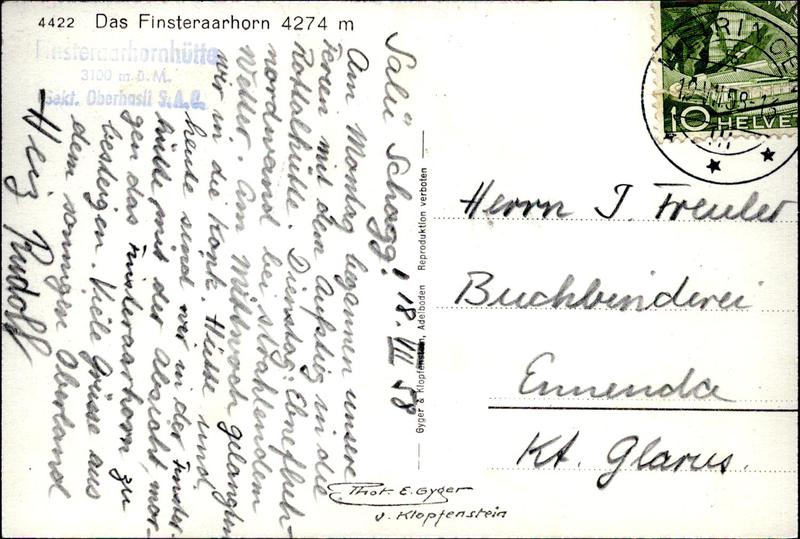 4422 Das Finsteraarhorn 4274 m
Finsteraarhornhütte
3100 m ü. M.
Sekt. Oberhasli S.A.C.
Salü Schagg! 18. VII 58
Am Montag begannen unsere
Ferien mit dem Aufstieg in die
Rottalhütte. Dienstag: Ebnefluh-
nordwand bei strahlendem
Wetter. Am Mittwoch gelangten
wir in die Konk. Hütte und
heute sind wir in der Finster-
hütte mit der Absicht, mor-
gen das Finsteraarhorn zu
besteigen. Viele Grüsse aus
dem sonnigen Oberland
Heiz Rudolf
Gyger & Klopfenstein, Adelboden Reproduktion verboten
Phot. E. Gyger
u. Klopfenstein
10 HELVE
Herrn J. Freuler
Buchbinderei
Ennenda
Kt. Glarus.